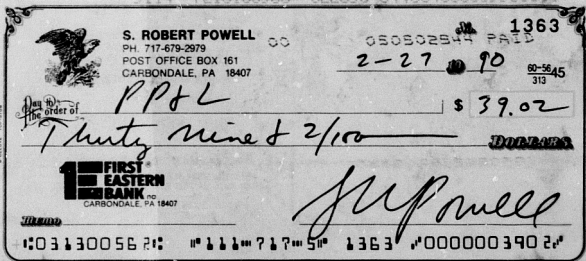 1363
S. ROBERT POWELL
PH. 717-679-2979
POST OFFICE BOX 161
CARBONDALE, PA 18407
00 050502944 PAID
2-27 19 90
60-56/313 45
Pay to the order of PP&L $ 39.02
Thirty nine & 2/100 DOLLARS
1 FIRST EASTERN BANK na
CARBONDALE, PA 18407
MEMO SRPowell
⑆031300562⑆ ⑈111⑈717⑈5⑈ 1363 ⑈0000003902⑈